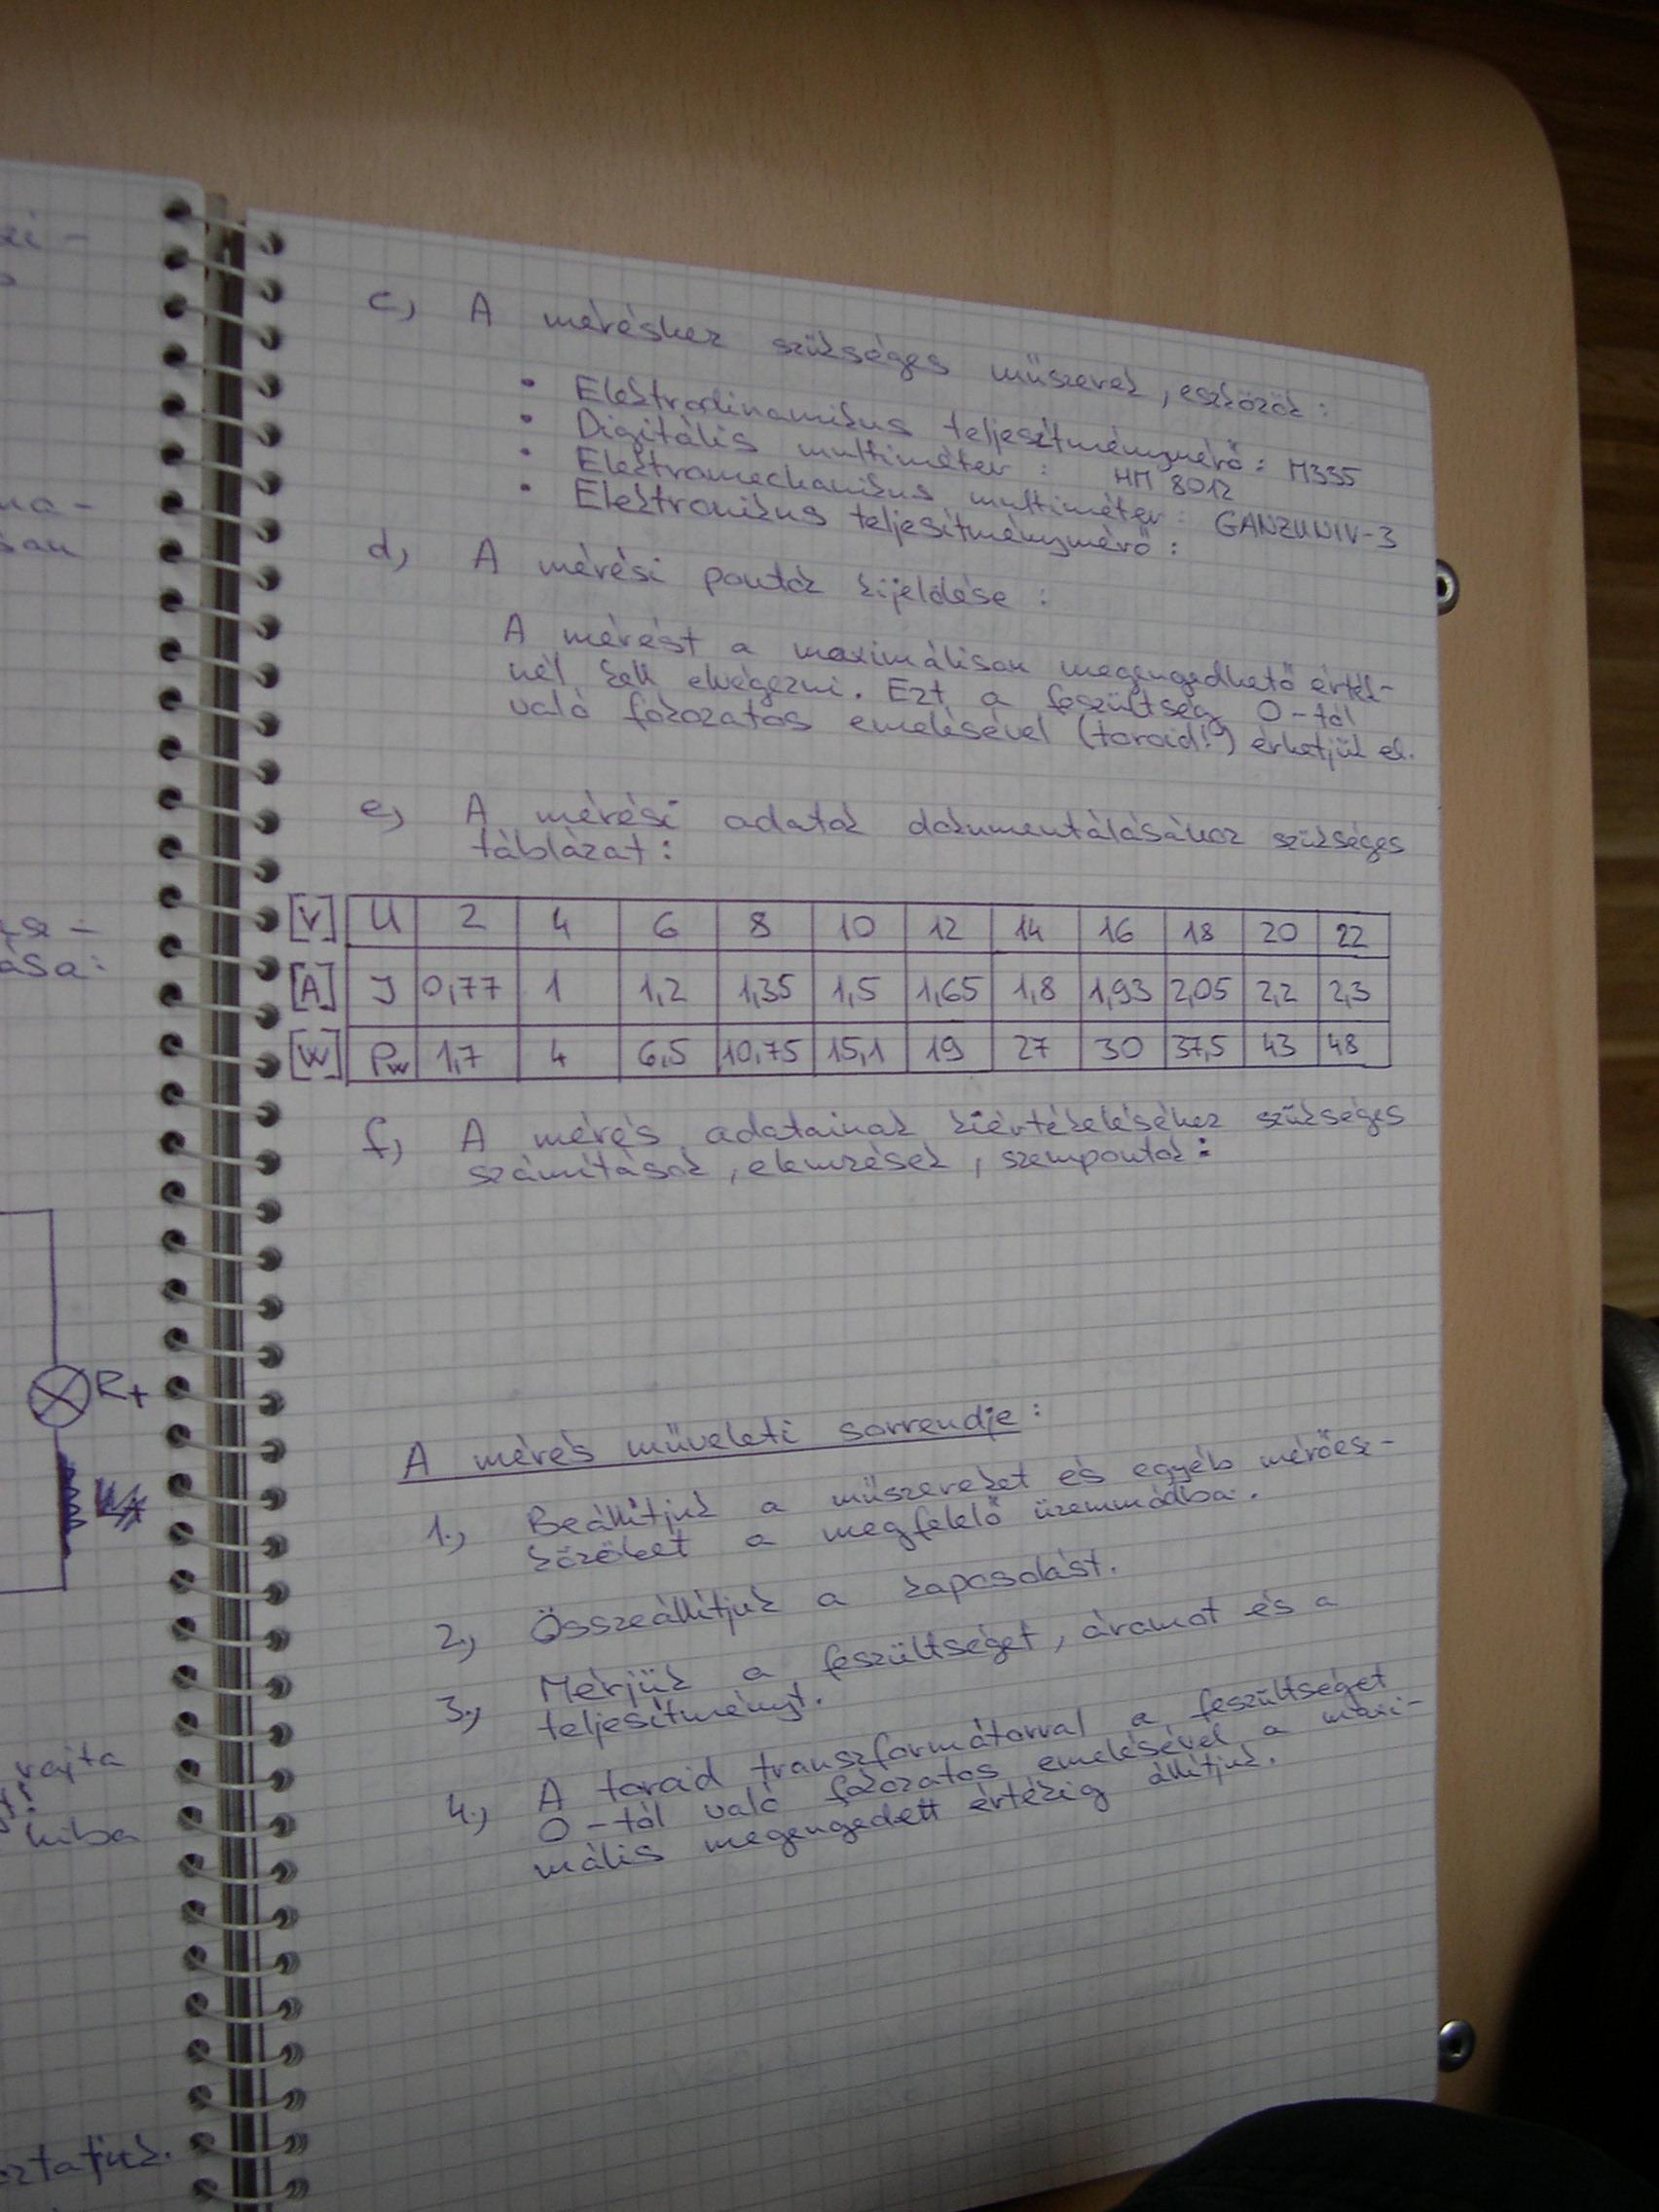 c, A méréshez szükséges műszerek, eszközök:
• Elektrodinamikus teljesítménymérő: M335
• Digitális multiméter: HM 8012
• Elektromechanikus multiméter: GANZUNIV-3
• Elektronikus teljesítménymérő:
d, A mérési pontok kijelölése:
A mérést a maximálisan megengedhető érték-
nél kell elvégezni. Ezt a feszültség 0-tól
való fokozatos emelésével (toroid!) érhetjük el.
e, A mérési adatok dokumentálásához szükséges
táblázat:
[V] U 2 4 6 8 10 12 14 16 18 20 22
[A] I 0,77 1 1,2 1,35 1,5 1,65 1,8 1,93 2,05 2,2 2,3
[W] Pw 1,7 4 6,5 10,75 15,1 19 27 30 37,5 43 48
f, A mérés adatainak kiértékeléséhez szükséges
számítások, elemzések, szempontok:
A mérés műveleti sorrendje:
1., Beállítjuk a műszereket és egyéb mérőesz-
közöket a megfelelő üzemmódba.
2., Összeállítjuk a kapcsolást.
3., Mérjük a feszültséget, áramot és a
teljesítményt.
4., A toroid transzformátorral a feszültséget
0-tól való fokozatos emelésével a maxi-
mális megengedett értékig állítjuk.
Rt
rajta
hiba